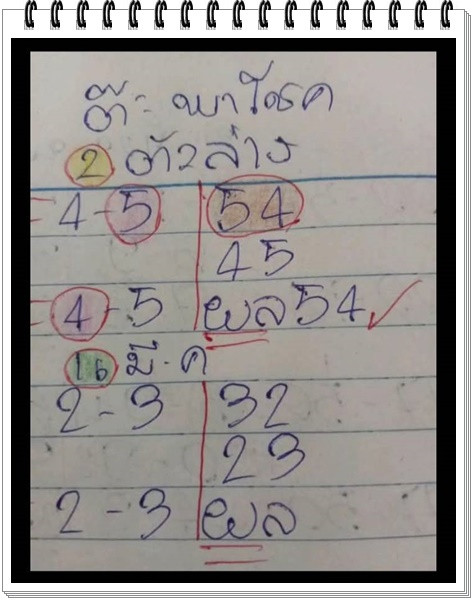 ต๊ะ พาโชค
2 ตัวล่าง
4-5 54
45
4-5 ผล54
16 มี.ค
2-3 32
23
2-3 ผล